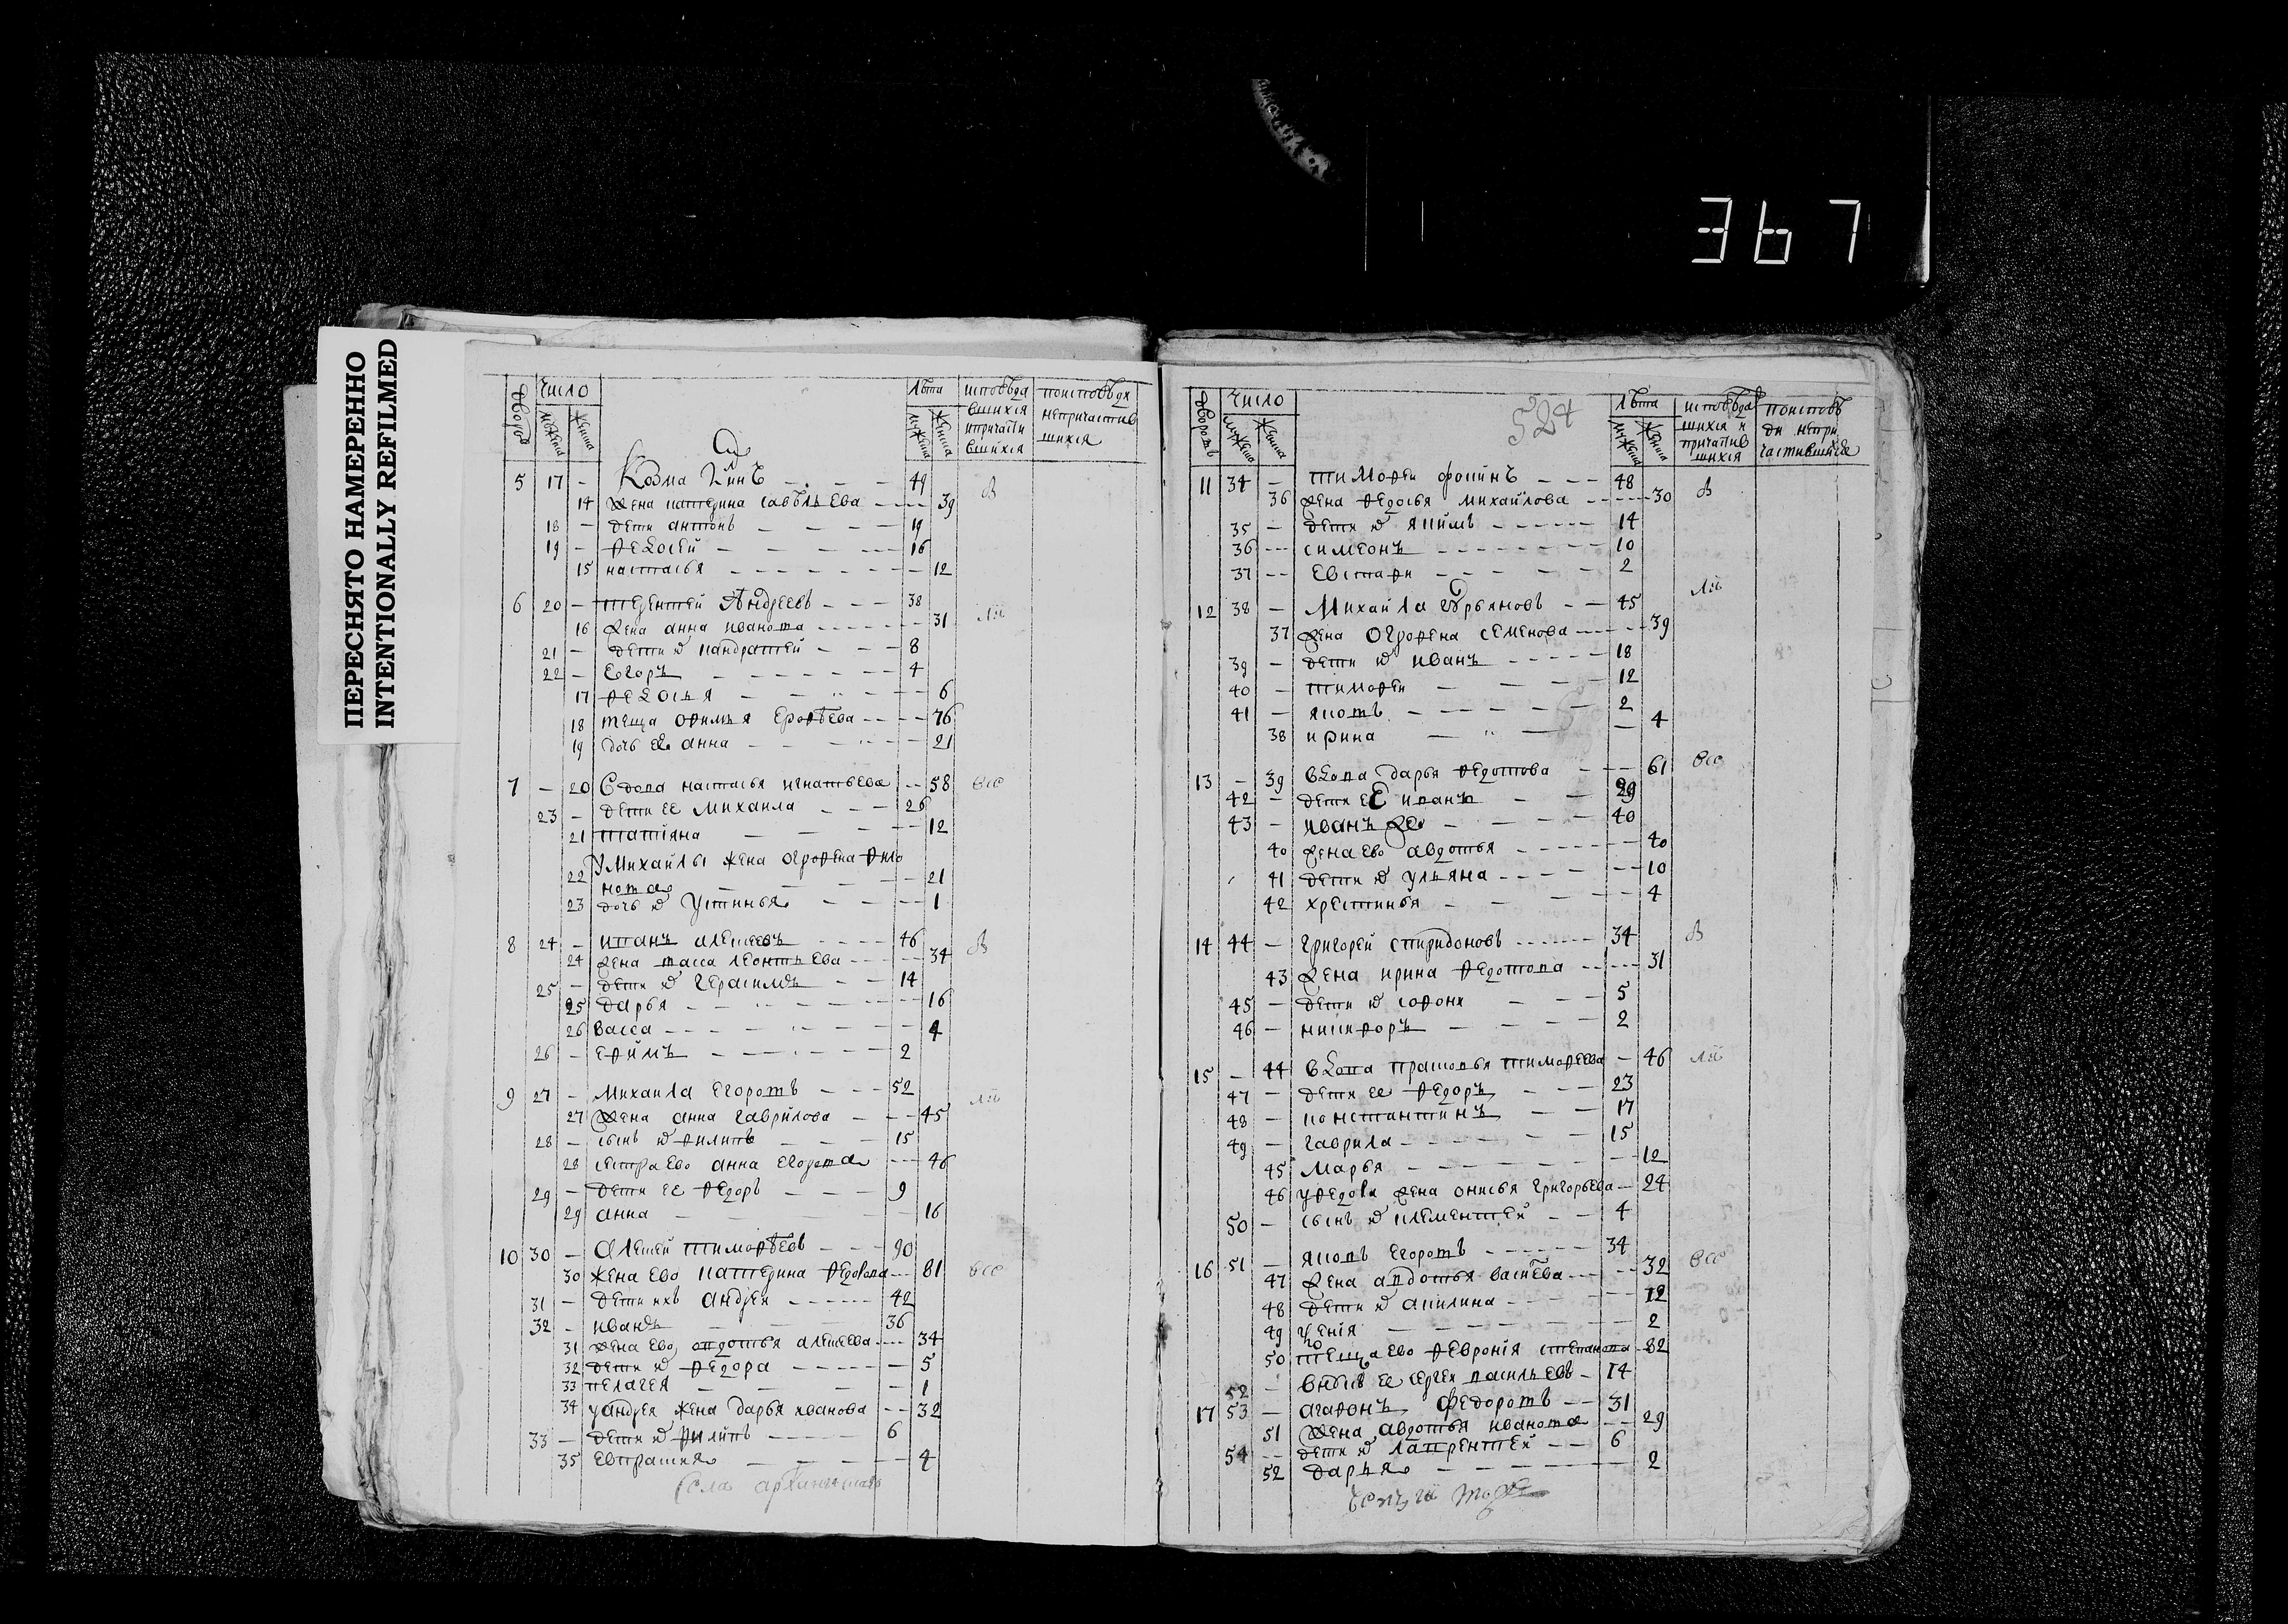 367
ПЕРЕСНЯТО НАМЕРЕННО
INTENTIONALLY REFILMED
число
лѣта
мужеска
женска
5 17 - Козма 49
14 жена катерина савѣльева 39
18 - дети антонъ 19
19 - федосей 16
15 настасья 12
6 20 - терентей Андреевъ 38
16 жена анна иванова 31
21 - дети кандратей 8
22 - Егоръ 4
17 федосья 6
18 теща офимья ерофѣева 76
19 дочь ее анна 21
7 - 20 вдова настасья игнатьева 58
23 - дети ее михаила 26
21 татіяна 12
22 У михайлы жена огрофена фило
нова 21
23 дочь Устинья 1
8 24 - иванъ алексеевъ 46
24 жена васса леонтьева 34
25 - дети герасимъ 14
25 дарья 16
26 васса 4
26 - ефимъ 2
9 27 - михаила егоровъ 52
27 жена анна гаврилова 45
28 - сынъ филипъ 15
28 сестра ево анна егорова 46
29 - дети ее федоръ 9
29 анна 16
10 30 - алексей тимофѣевъ 90
30 жена ево катерина федорова 81
31 - дети ихъ андрей 42
32 - иванъ 36
31 жена ево авдотья алексеева 34
32 дети федора 5
33 пелагея 1
34 у андрея жена дарья иванова 32
33 - дети филипъ 6
35 евпраксия 4
524
число
лѣта
11 34 - тимофеи фокинъ 48
36 жена федосья михайлова 30
35 - дети якимъ 14
36 симеонъ 10
37 евстафи 2
12 38 - Михайла гурьяновъ 45
37 жена огрофена семенова 39
39 - дети иванъ 18
40 - тимофеи 12
41 - яковъ 2
38 ирина 4
13 - 39 вдова дарья федотова 61
42 - дети ее иванъ 29
43 - иванъ же 40
40 жена ево авдотья 40
41 дети ульяна 10
42 хрестинья 4
14 44 - григорей спиридоновъ 34
43 жена ирина федотова 31
45 - дети софонъ 5
46 - никифоръ 2
15 - 44 вдова прасковья тимофеева 46
47 - дети ее федоръ 23
48 - константинъ 17
49 - гаврила 15
45 марья 12
46 у федора жена онисья григорьева 24
50 - сынъ клементей 4
16 51 - яковъ егоровъ 34
47 жена авдотья васильева 32
48 дети акилина 12
49 2
50 теща ево февронія степанова 82
52 - внукъ ее сергеи васильевъ 14
17 53 - агафонъ федоровъ 31
51 жена авдотья иванова 29
54 дети лаврентей 6
52 дарья 2